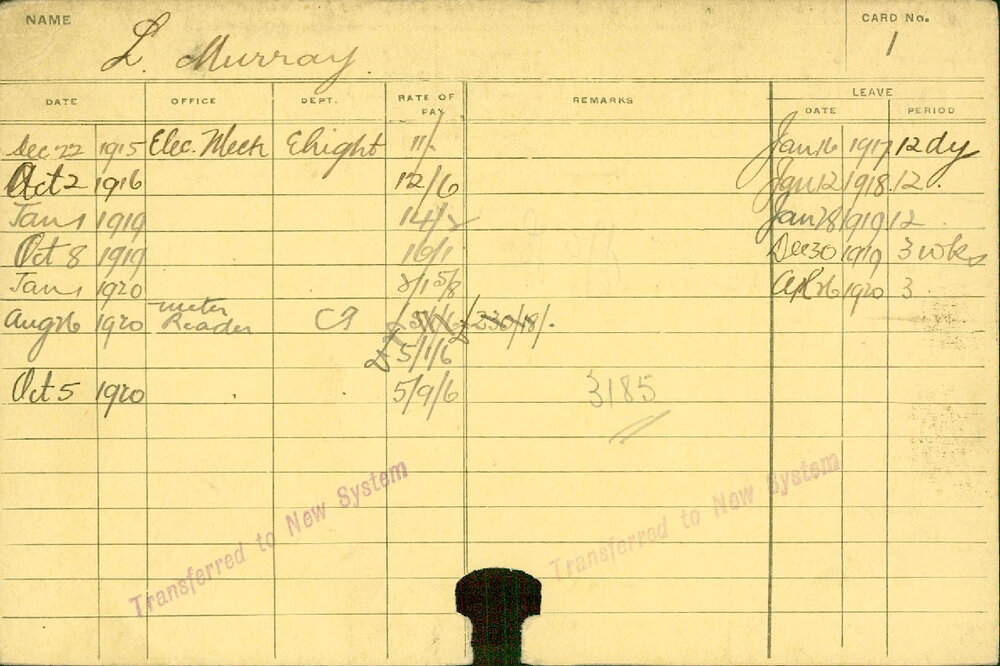 NAME
L. Murray.
CARD No.
1
DATE OFFICE DEPT. RATE OF PAY REMARKS LEAVE
DATE PERIOD
Dec 22 1915 Elec. Mech Elight 11/- Jan 16 1917 12 dy
Oct 2 1916 12/6 Jan 12 1918. 12.
Jan 1 1919 14/2 Jan 28 1919 12
Oct 8 1919 16/1 Dec 30 1919 3 wks
Jan 1 1920 Apl 26 1920 3
Aug 26 1920 meter Reader £230/18/.
5/1/6
Oct 5 1920 5/9/6 3185
Transferred to New System
Transferred to New System